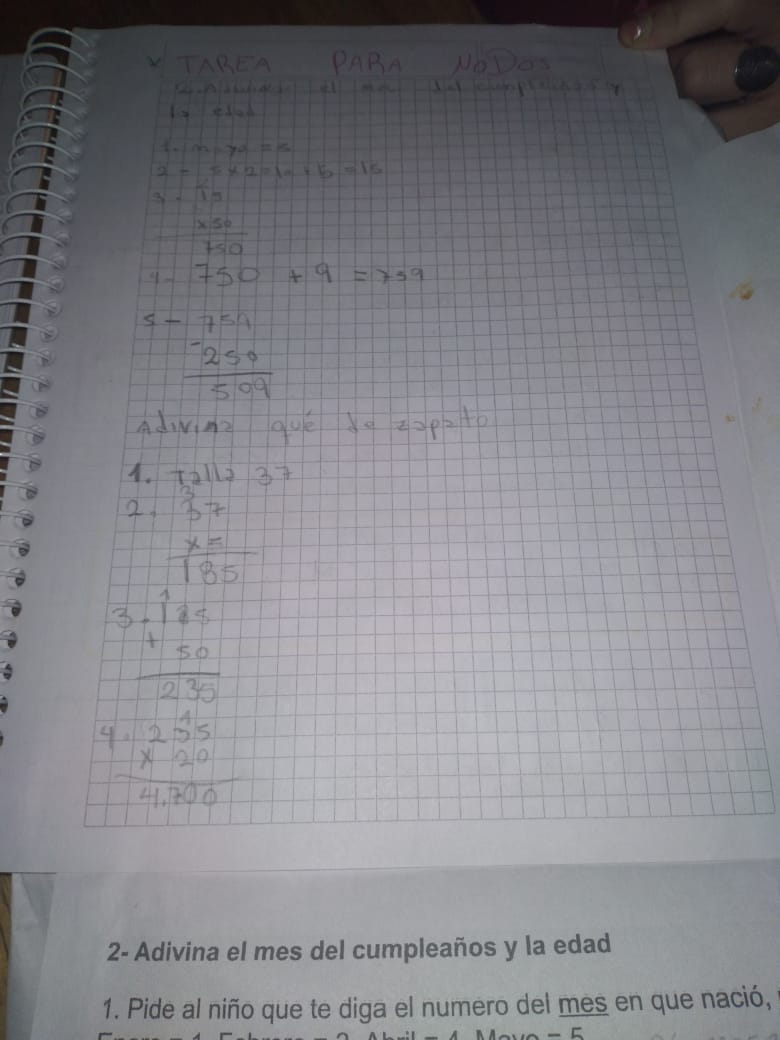 TAREA PARA NODOS
2-Adivina el mes del cumpleaños y
la edad
1- mayo = 5
2 - 5 x 2 = 10 + 5 = 15
3 - 15
x 50
750
4- 750 + 9 = 759
5 - 759
- 250
509
Adivina qué de zapato
1. Talla 37
2. 37
x 5
185
3. 185
+ 50
235
4. 235
x 20
4.700
2- Adivina el mes del cumpleaños y la edad
1. Pide al niño que te diga el numero del mes en que nació,
Enero = 1 Febrero = 2 Abril = 4 Mayo = 5